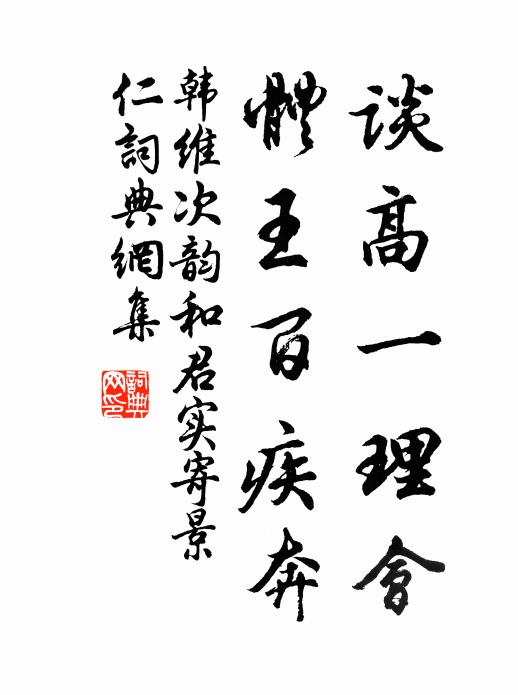 谈高一理會
體王百疾奔
韩維次韵和君实寄景
仁詞典網集
詞典网印